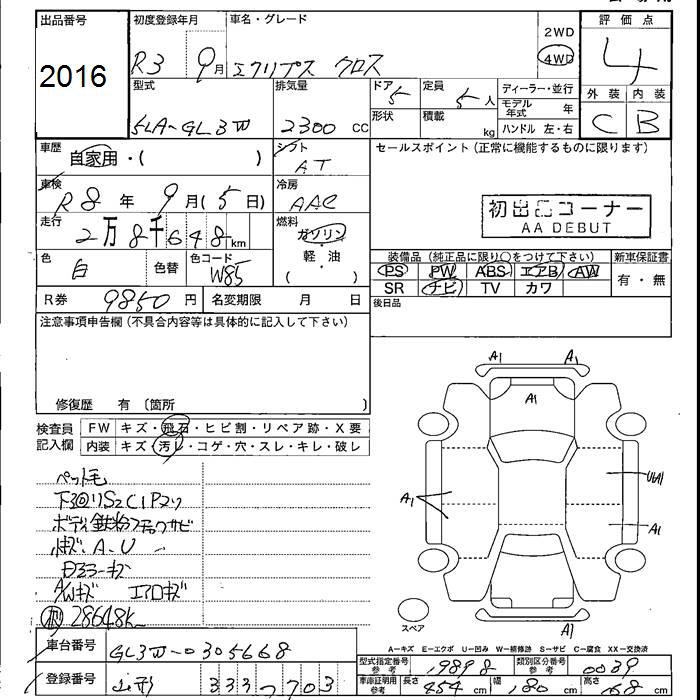 出品番号
2016
初度登録年月
R3 9月
車名・グレード
エクリプス クロス
2WD
4WD
評価点
4
外装 内装
C B
型式
5LA-GL3W
排気量
2300 CC
ドア 5
形状
定員 5人
積載 kg
ディーラー・並行
モデル年式 年
ハンドル 左・右
車歴
自家用・( )
シフト
AT
セールスポイント(正常に機能するものに限ります)
初出品コーナー
AA DEBUT
車検
R8年 9月(5日)
冷房
AAC
走行
2万8千648km
燃料
ガソリン
・軽・油
( )
色
白
色替
色コード
W85
装備品(純正品に限り○をつけて下さい)
新車保証書
PS PW ABS エアB AW
SR ナビ TV カワ
有・無
後日品
R券 9850円
名変期限 月 日
注意事項申告欄(不具合内容等は具体的に記入して下さい)
修復歴 有〔箇所
検査員記入欄
FW キズ・飛石・ヒビ割・リペア跡・X要
内装 キズ・汚レ・コゲ・穴・スレ・キレ・破レ
ペット毛
下回りS2C1Pマフ
A-U
A/Wキズ エアロキズ
28648K
A1 A1
A1
A1
U1
A1
A1
スペア
A-キズ E-エクボ U-凹み W-補修跡 S-サビ C-腐食 XX-交換済
車台番号
GL3W-0305668
登録番号
山形 333 7703
型式指定番号 参考
19898
類別区分番号 参考
0039
車庫証明用 参考
長さ 454cm
幅 180cm
高さ 168cm